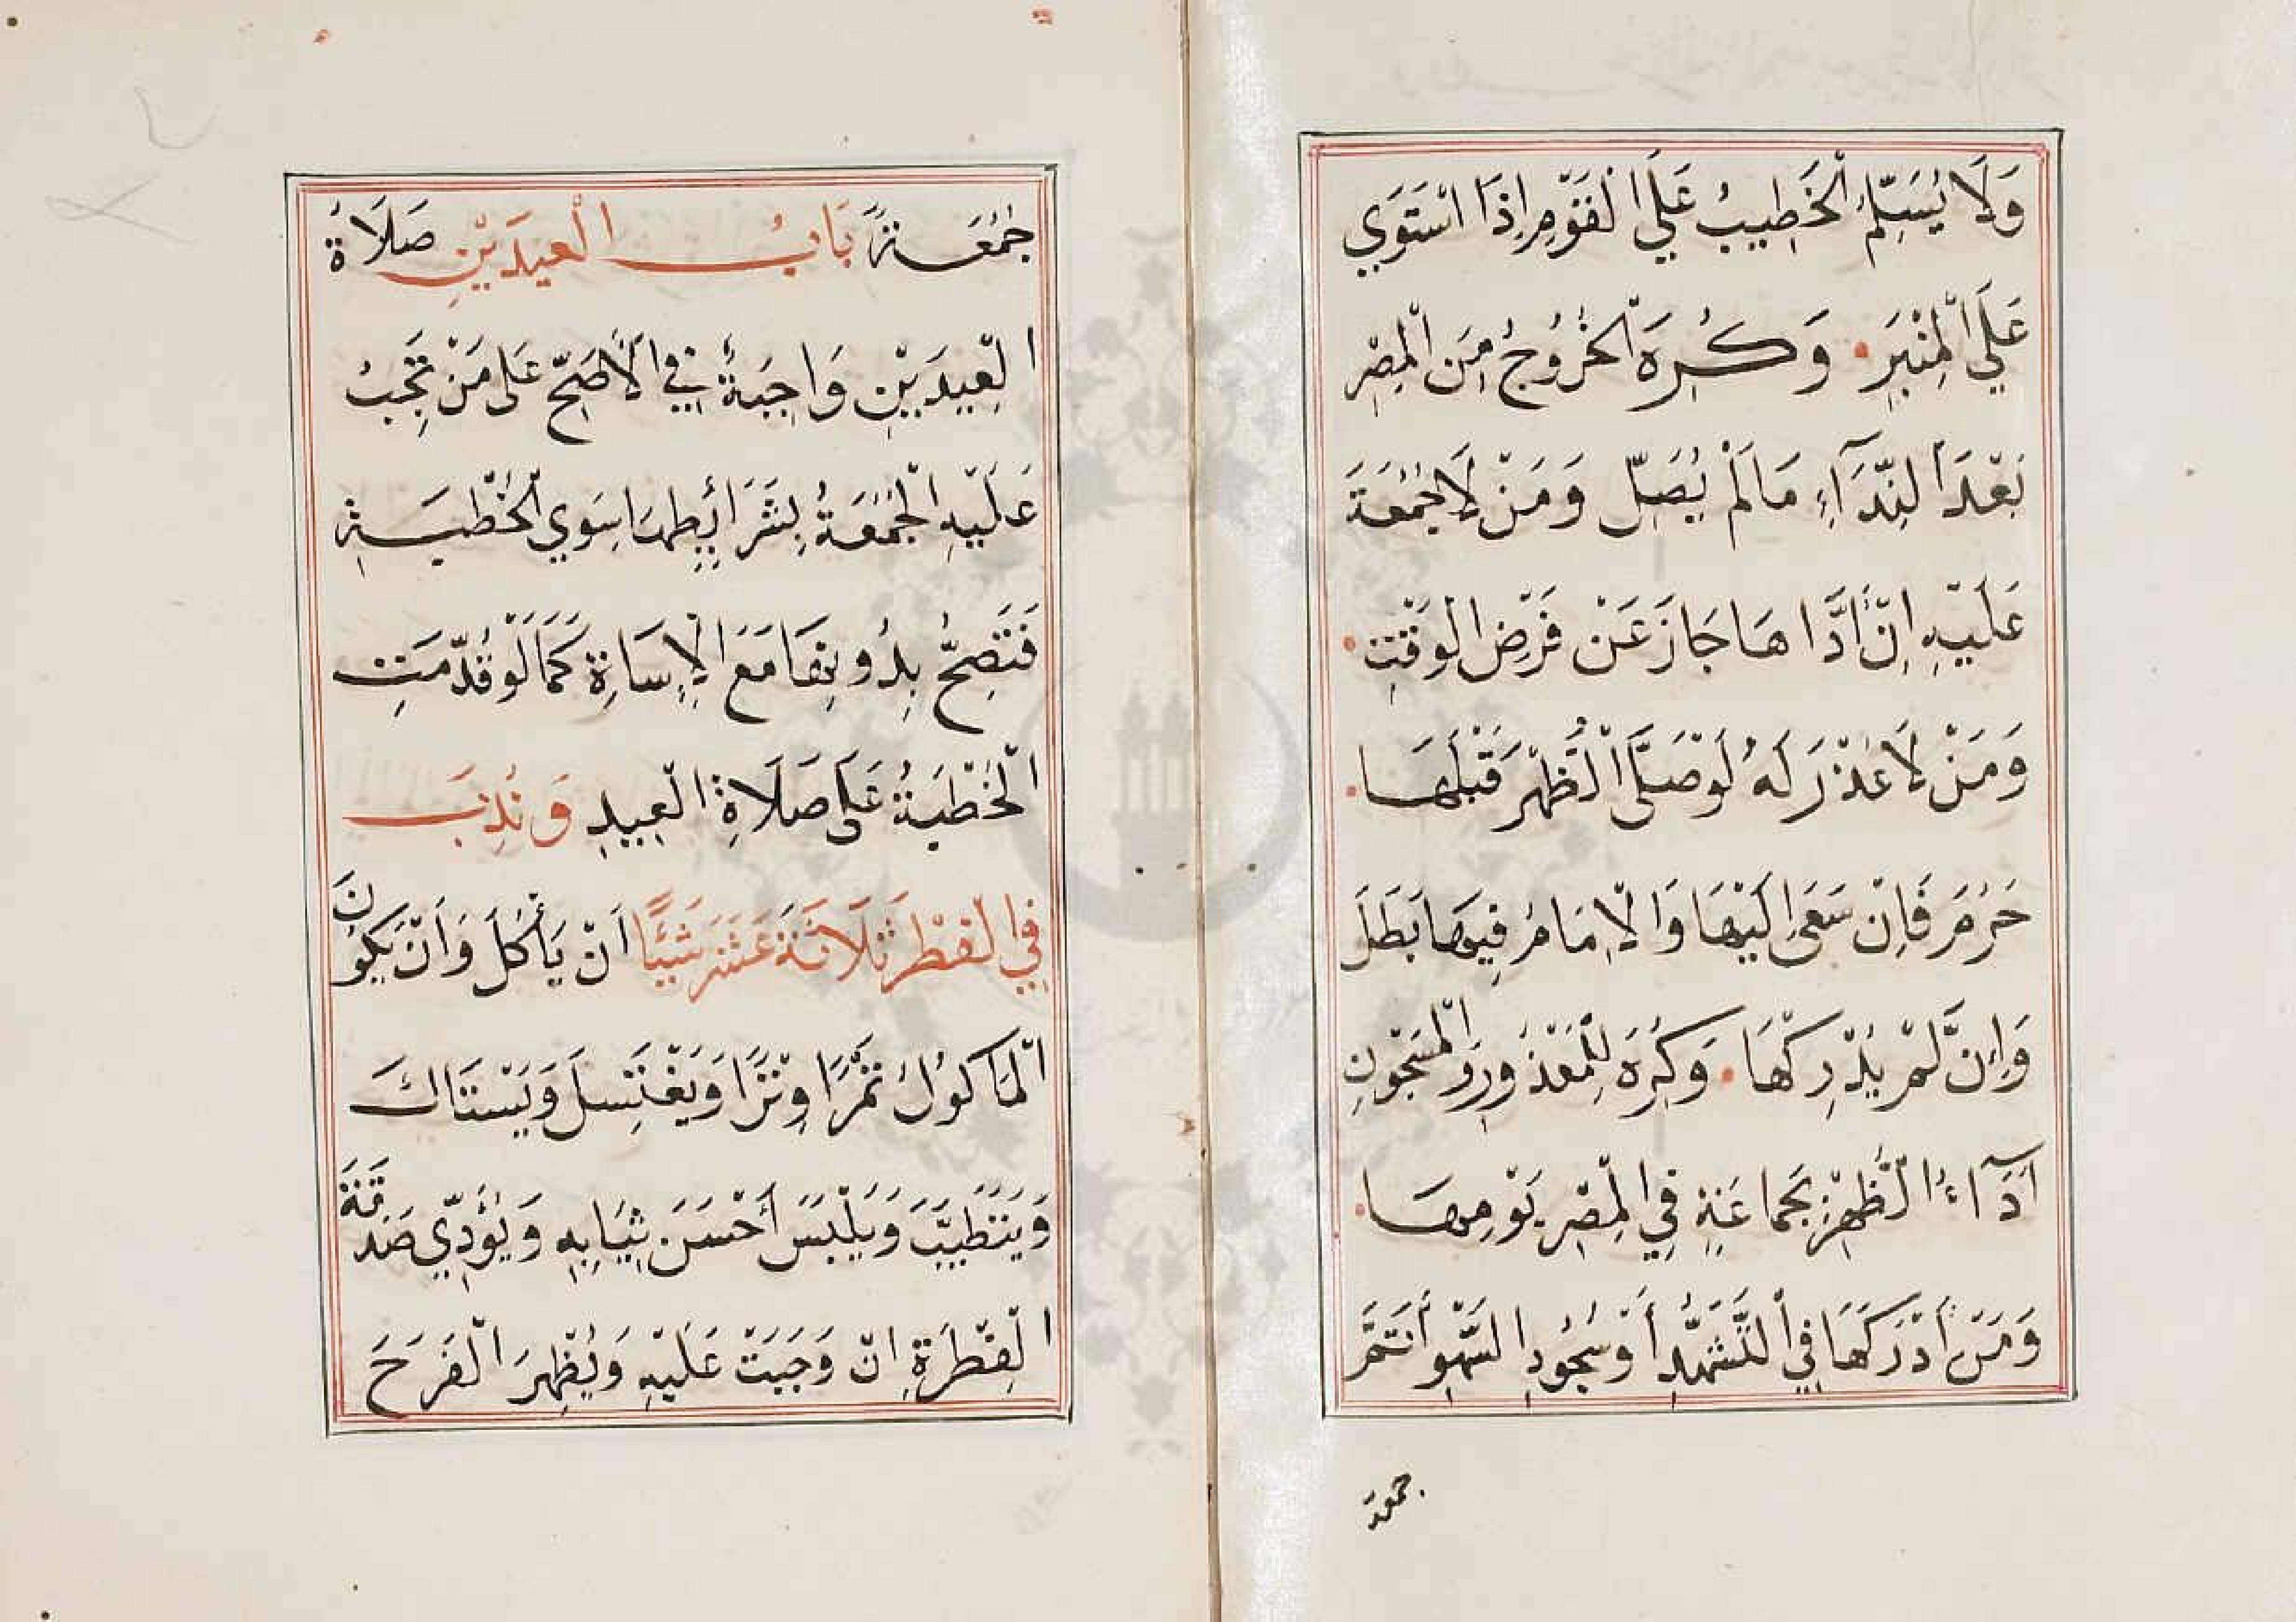 وَلَا يُسَلِّمُ الْخَطِيبُ عَلَي الْقَوْمِ اِذَا اسْتَوَي
عَلَي الْمِنْبَرِ • وَكُرِهَ الْخُرُوجُ مِنَ الْمِصْرِ
بَعْدَ النِّدَآءِ مَا لَمْ يُصَلِّ وَمَنْ لَا جُمُعَةَ
عَلَيْهِ اِنْ اَدَّاهَا جَازَ عَنْ فَرْضِ الْوَقْتِ •
وَمَنْ لَا عُذْرَ لَهُ لَوْ صَلَّى الظُّهْرَ قَبْلَهَا •
حَرُمَ فَاِنْ سَعَى اِلَيْهَا وَالْاِمَامُ فِيهَا بَطَلَ
وَاِنْ لَّمْ يُدْرِكْهَا • وَكُرِهَ لِلْمَعْذُورِ وَالْمَسْجُونِ
اَدَآءُ الظُّهْرِ بِجَمَاعَةٍ فِي الْمِصْرِ يَوْمِهَا •
وَمَنْ اَدْرَكَهَا فِي التَّشَهُّدِ أَوْ سُجُودِ السَّهْوِ أَتَمَّ
جمعة
جُمُعَةً بَابُ الْعِيدَيْنِ صَلَاةُ
الْعِيدَيْنِ وَاجِبَةٌ فِي الْاَصَحِّ عَلَى مَنْ تَجِبُ
عَلَيْهِ الْجُمُعَةُ بِشَرَائِطِهَا سِوَي الْخُطْبَةِ
فَتَصِحُّ بِدُونِهَا مَعَ الْاِسَاءَةِ كَمَا لَوْ قُدِّمَتِ
الْخُطْبَةُ عَلَى صَلَاةِ الْعِيدِ وَنُدِبَ
فِي الْفِطْرِ ثَلَاثَةَ عَشَرَ شَيْئًا اَنْ يَأْكُلَ وَاَنْ يَكُونَ
الْمَاكُولُ تَمْرًا وِتْرًا وَيَغْتَسِلَ وَيَسْتَاكَ
وَيَتَطَيَّبَ وَيَلْبَسَ أَحْسَنَ ثِيَابِهِ وَيُؤَدِّي صَدَقَةَ
الْفِطْرَةِ اِنْ وَجَبَتْ عَلَيْهِ وَيُظْهِرَ الْفَرَحَ